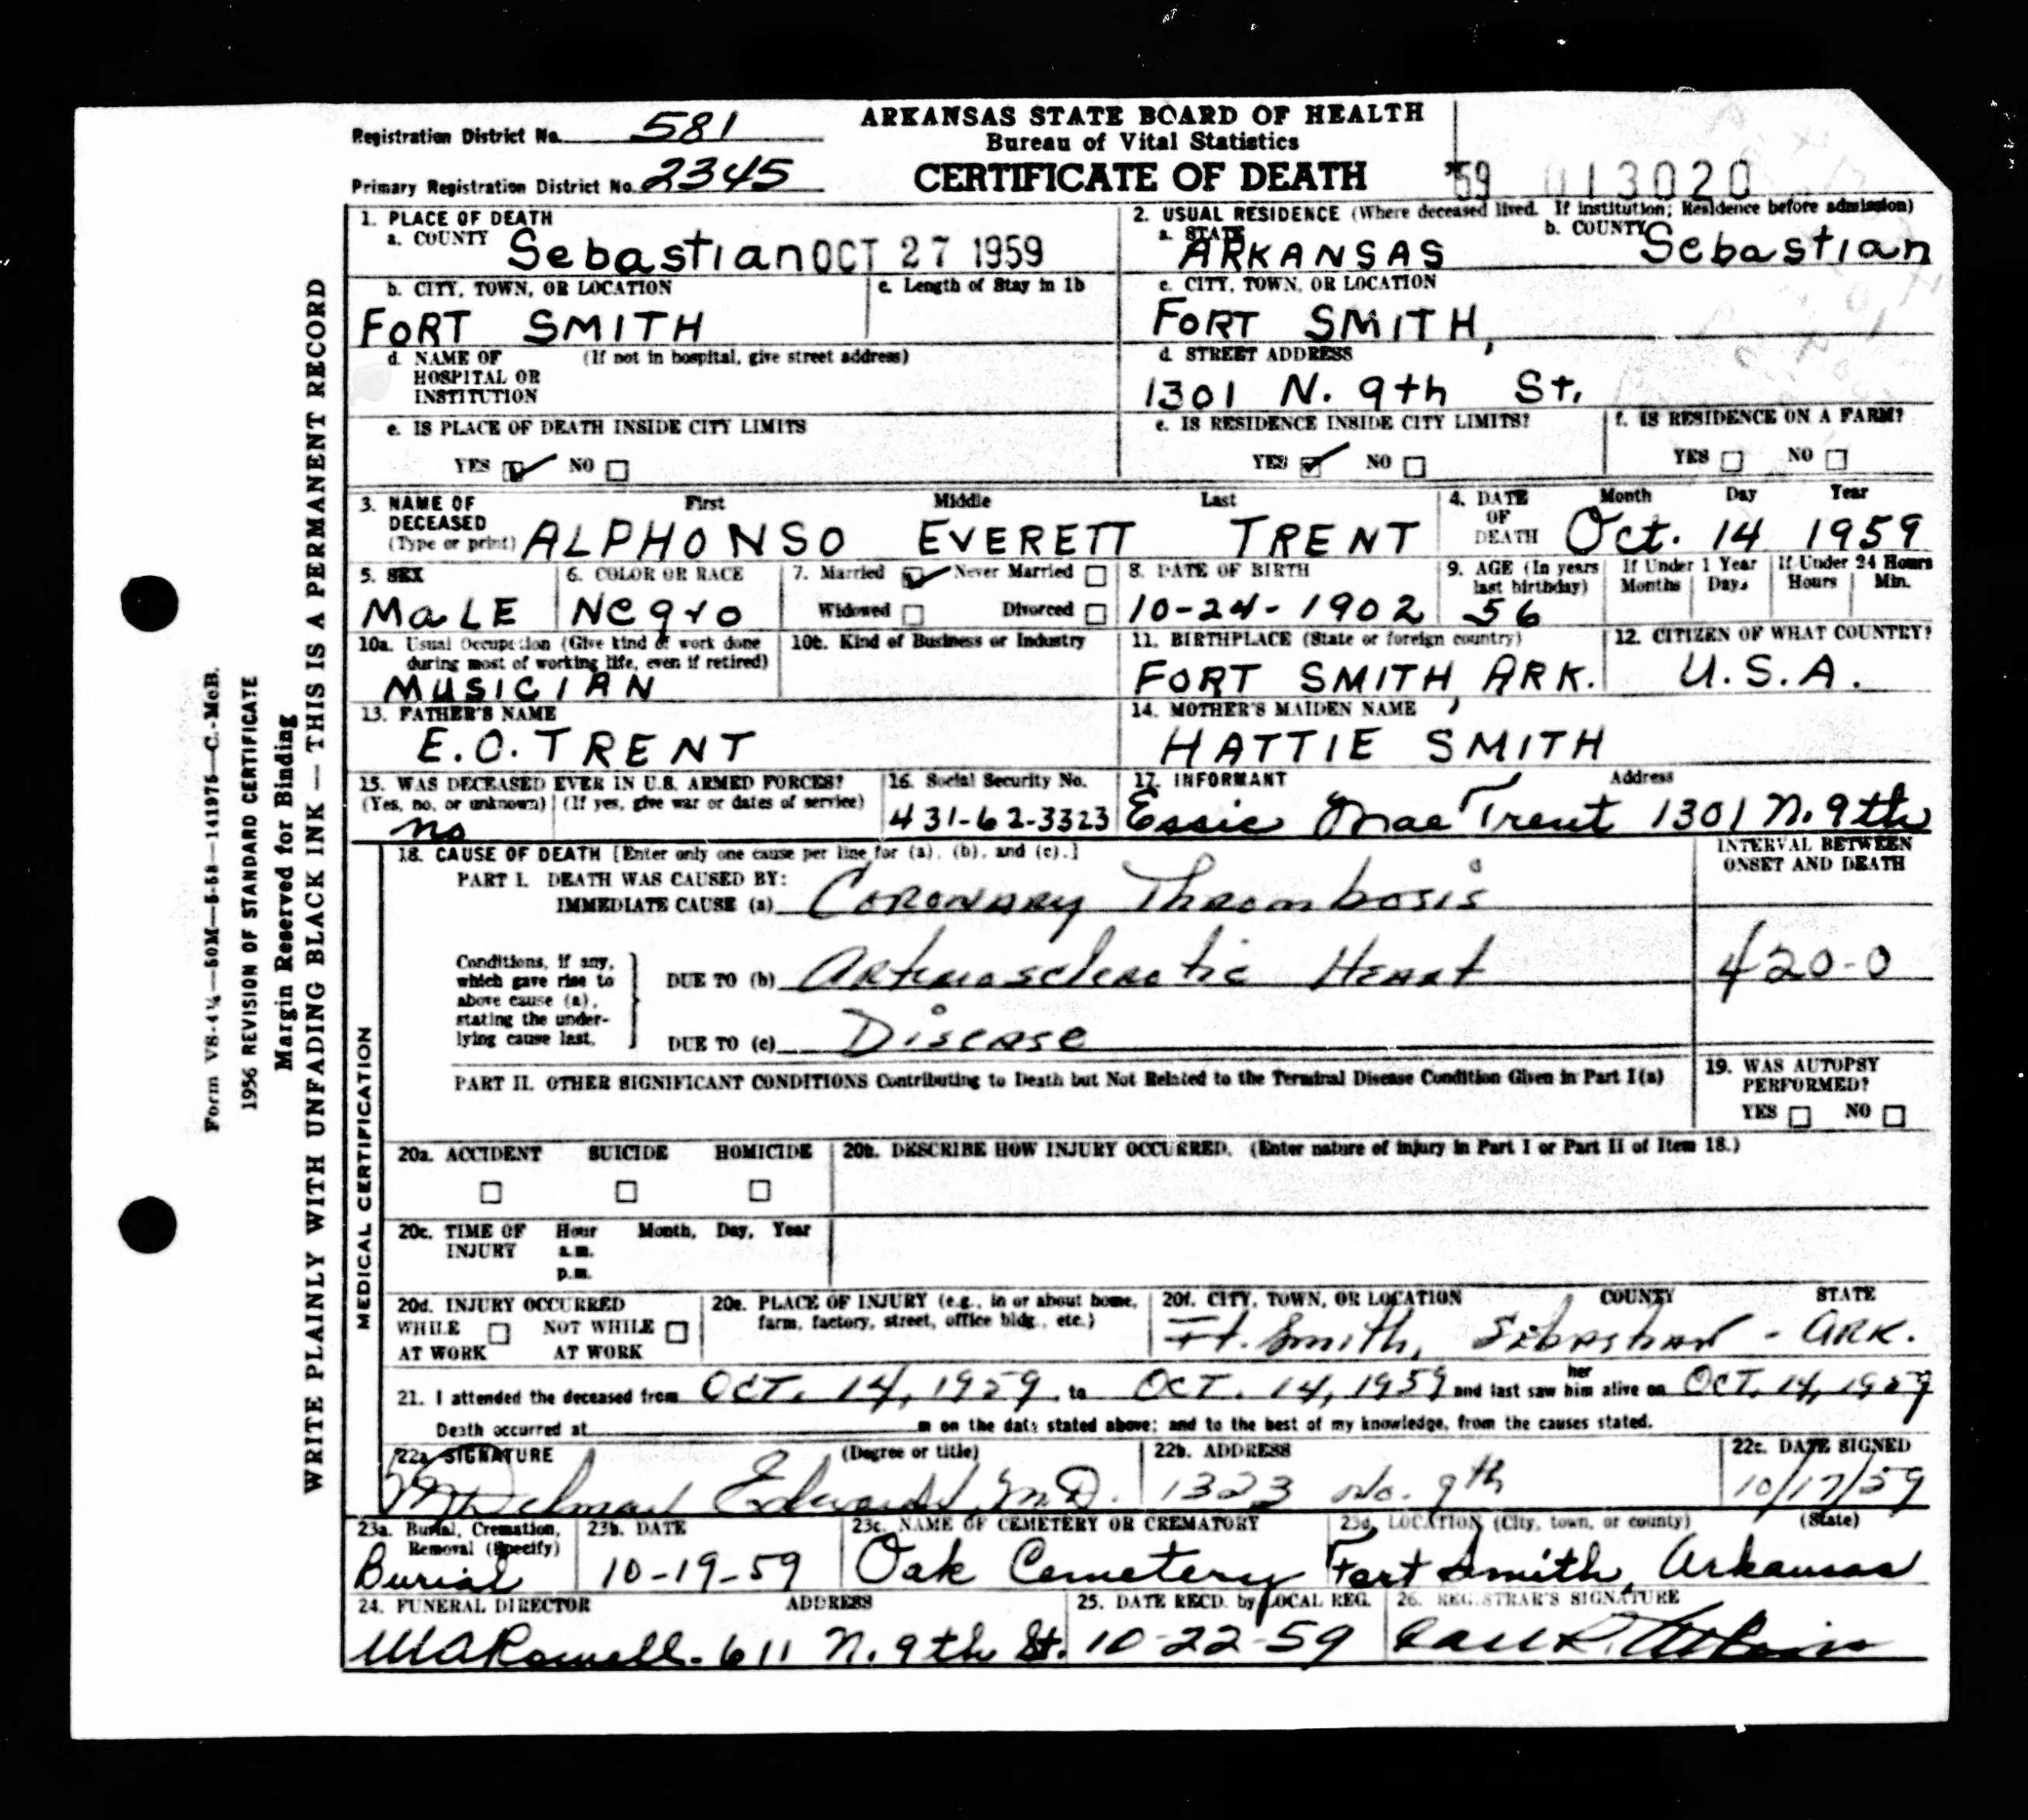 ARKANSAS STATE BOARD OF HEALTH
Bureau of Vital Statistics
CERTIFICATE OF DEATH
Registration District No. 581
Primary Registration District No. 2345
'59 013020
1. PLACE OF DEATH
a. COUNTY Sebastian OCT 27 1959
2. USUAL RESIDENCE (Where deceased lived. If institution; Residence before admission)
a. STATE ARKANSAS b. COUNTY Sebastian
b. CITY, TOWN, OR LOCATION FORT SMITH
c. Length of Stay in 1b
c. CITY, TOWN, OR LOCATION
FORT SMITH,
d. NAME OF HOSPITAL OR INSTITUTION (If not in hospital, give street address)
d. STREET ADDRESS
1301 N. 9th St.
e. IS PLACE OF DEATH INSIDE CITY LIMITS
YES NO
e. IS RESIDENCE INSIDE CITY LIMITS?
YES NO
f. IS RESIDENCE ON A FARM?
YES NO
3. NAME OF DECEASED (Type or print) First Middle Last
ALPHONSO EVERETT TRENT
4. DATE OF DEATH Month Day Year
Oct. 14 1959
5. SEX
MaLE
6. COLOR OR RACE
Negro
7. Married Never Married
Widowed Divorced
8. DATE OF BIRTH
10-24-1902
9. AGE (In years last birthday)
56
If Under 1 Year
Months Days
If Under 24 Hours
Hours Min.
10a. Usual Occupation (Give kind of work done during most of working life, even if retired)
MUSICIAN
10b. Kind of Business or Industry
11. BIRTHPLACE (State or foreign country)
FORT SMITH, ARK.
12. CITIZEN OF WHAT COUNTRY?
U.S.A.
13. FATHER'S NAME
E.O. TRENT
14. MOTHER'S MAIDEN NAME
HATTIE SMITH
15. WAS DECEASED EVER IN U.S. ARMED FORCES?
(Yes, no, or unknown) (If yes, give war or dates of service)
no
16. Social Security No.
431-62-3323
17. INFORMANT Address
Essie Mae Trent 1301 N. 9th
18. CAUSE OF DEATH [Enter only one cause per line for (a), (b), and (c).]
INTERVAL BETWEEN ONSET AND DEATH
PART I. DEATH WAS CAUSED BY:
IMMEDIATE CAUSE (a) Coronary Thrombosis
Conditions, if any, which gave rise to above cause (a), stating the underlying cause last.
DUE TO (b) Arteriosclerotic Heart
420-0
DUE TO (c) Disease
PART II. OTHER SIGNIFICANT CONDITIONS Contributing to Death but Not Related to the Terminal Disease Condition Given in Part I(a)
19. WAS AUTOPSY PERFORMED?
YES NO
20a. ACCIDENT SUICIDE HOMICIDE
20b. DESCRIBE HOW INJURY OCCURRED. (Enter nature of injury in Part I or Part II of Item 18.)
20c. TIME OF INJURY Hour Month, Day, Year
a.m.
p.m.
20d. INJURY OCCURRED
WHILE AT WORK NOT WHILE AT WORK
20e. PLACE OF INJURY (e.g., in or about home, farm, factory, street, office bldg., etc.)
20f. CITY, TOWN, OR LOCATION COUNTY STATE
Ft. Smith, Sebastian - ARK.
21. I attended the deceased from OCT. 14, 1959 to OCT. 14, 1959 and last saw her him alive on OCT. 14, 1959
Death occurred at m on the date stated above; and to the best of my knowledge, from the causes stated.
22a. SIGNATURE (Degree or title)
Edwards M.D.
22b. ADDRESS
1323 No. 9th
22c. DATE SIGNED
10/17/59
23a. Burial, Cremation, Removal (Specify)
Burial
23b. DATE
10-19-59
23c. NAME OF CEMETERY OR CREMATORY
Oak Cemetery
23d. LOCATION (City, town, or county) (State)
Fort Smith, Arkansas
24. FUNERAL DIRECTOR ADDRESS
Rowell - 611 N. 9th St.
25. DATE RECD. by LOCAL REG.
10-22-59
26. REGISTRAR'S SIGNATURE
MEDICAL CERTIFICATION
WRITE PLAINLY WITH UNFADING BLACK INK — THIS IS A PERMANENT RECORD
Margin Reserved for Binding
1956 REVISION OF STANDARD CERTIFICATE
Form VS-4¼—50M—5-58—141975—C.-McB.